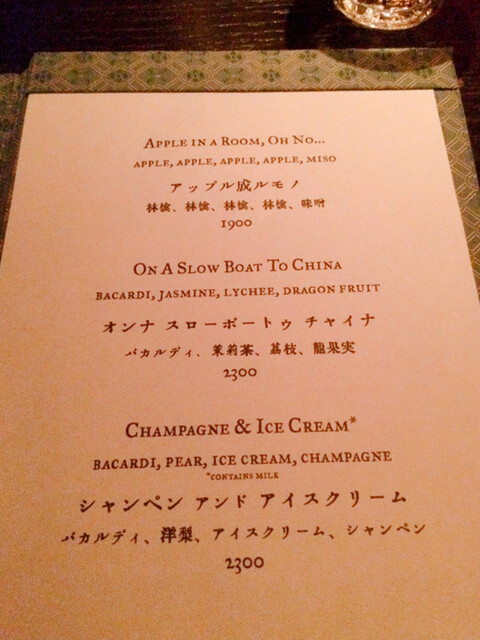 Apple in a Room, Oh No...
apple, apple, apple, apple, miso
アップル成ルモノ
林檎、林檎、林檎、林檎、味噌
1900
On A Slow Boat To China
Bacardi, jasmine, lychee, dragon fruit
オンナ スローボートゥ チャイナ
バカルディ、茉莉茶、茘枝、龍果実
2300
Champagne & Ice Cream*
Bacardi, pear, ice cream, champagne
*contains milk
シャンペン アンド アイスクリーム
バカルディ、洋梨、アイスクリーム、シャンペン
2300